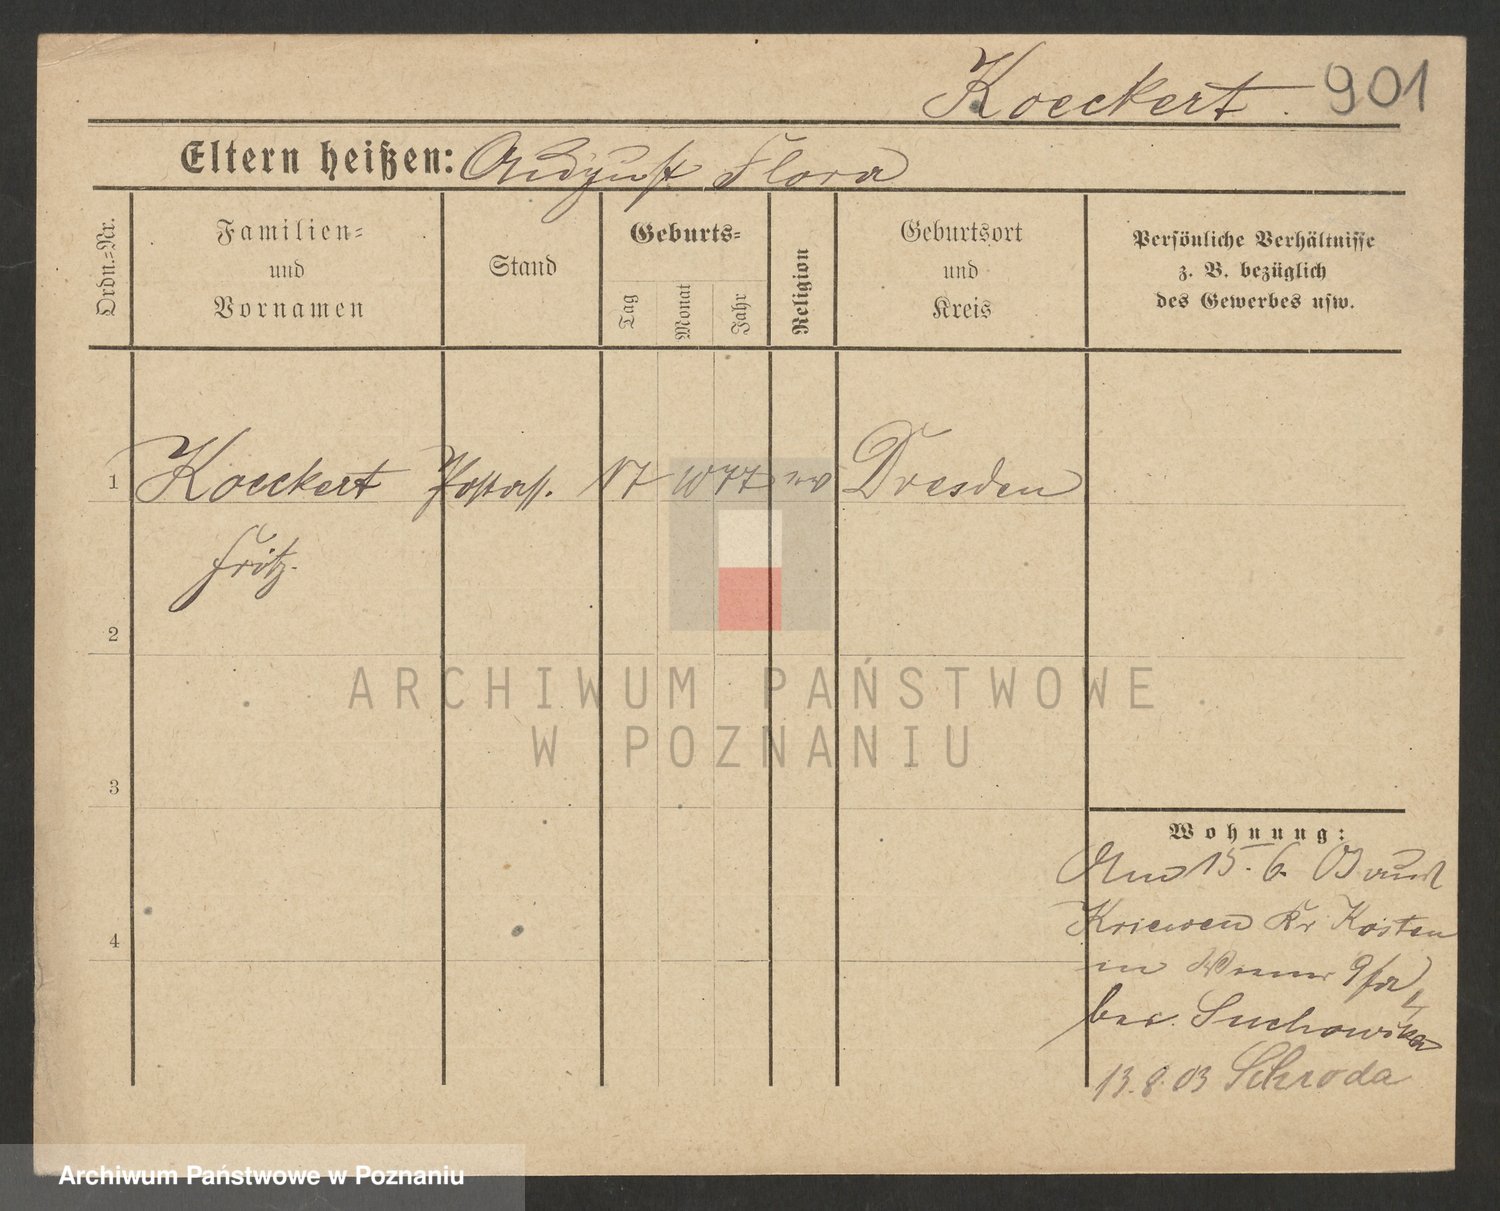 Koeckert. 901
Eltern heißen: August Flora
Ordn.-Nr.
Familien-
und
Vornamen
Stand
Geburts-
Tag
Monat
Jahr
Religion
Geburtsort
und
Kreis
Persönliche Verhältnisse
z. B. bezüglich
des Gewerbes usw.
1 Koeckert Postass. 17 10 77 ev Dresden
Fritz.
2
ARCHIWUM PAŃSTWOWE
W POZNANIU
3
Wohnung:
15. 6. 03 nach
Kriewen Kr Kosten
in
4
bei Suchowska
13.8.03 Schroda
Archiwum Państwowe w Poznaniu